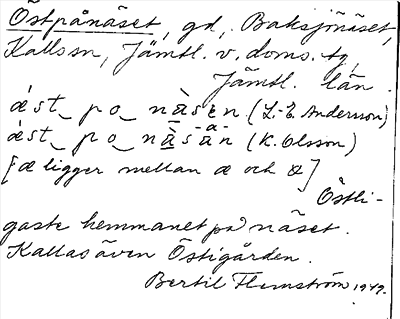 Östpånäset, gd, Baksjönäset,
Kallssn, Jämtl. v. doms. tg,
Jämtl. län.
ǽst_ po_ nàsen (L.-E. Andersson)
ǽst_ po_ nàsän (K. Olsson)
[æ ligger mellan æ och
Östli-
gaste hemmanet på näset.
Kallas även Östigården.
Bertil Flemström 1949.